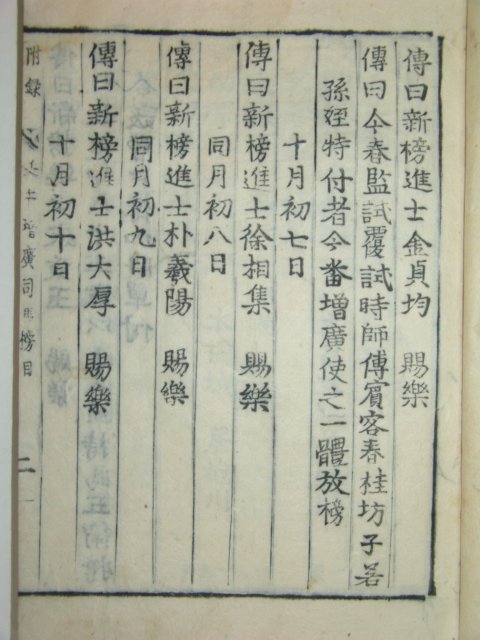 傳曰新榜進士金貞均 賜樂
傳曰今春監試覆試時師傅賓客春桂坊子若
孫姪特付者今番增廣使之一體放榜
十月初七日
傳曰新榜進士徐相集 賜樂
同月初八日
傳曰新榜進士朴羲陽 賜樂
同月初九日
傳曰新榜進士洪大厚 賜樂
十月初十日
附录 增廣司馬榜目 二